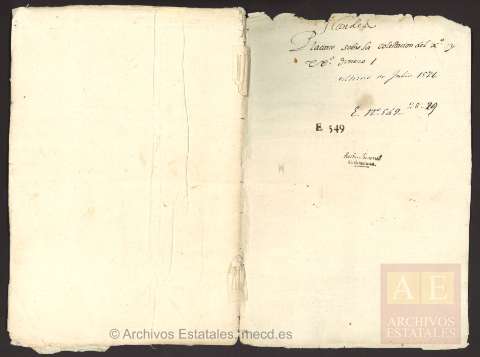 Flandes
Placarte sobre la colectacion del x.º y
xx.º dinero
ultimo de Julio 1571
E. N.º 549 29
E 549
Archivo General
de Simancas
AE
ARCHIVOS
ESTATALES
© Archivos Estatales, mecd.es